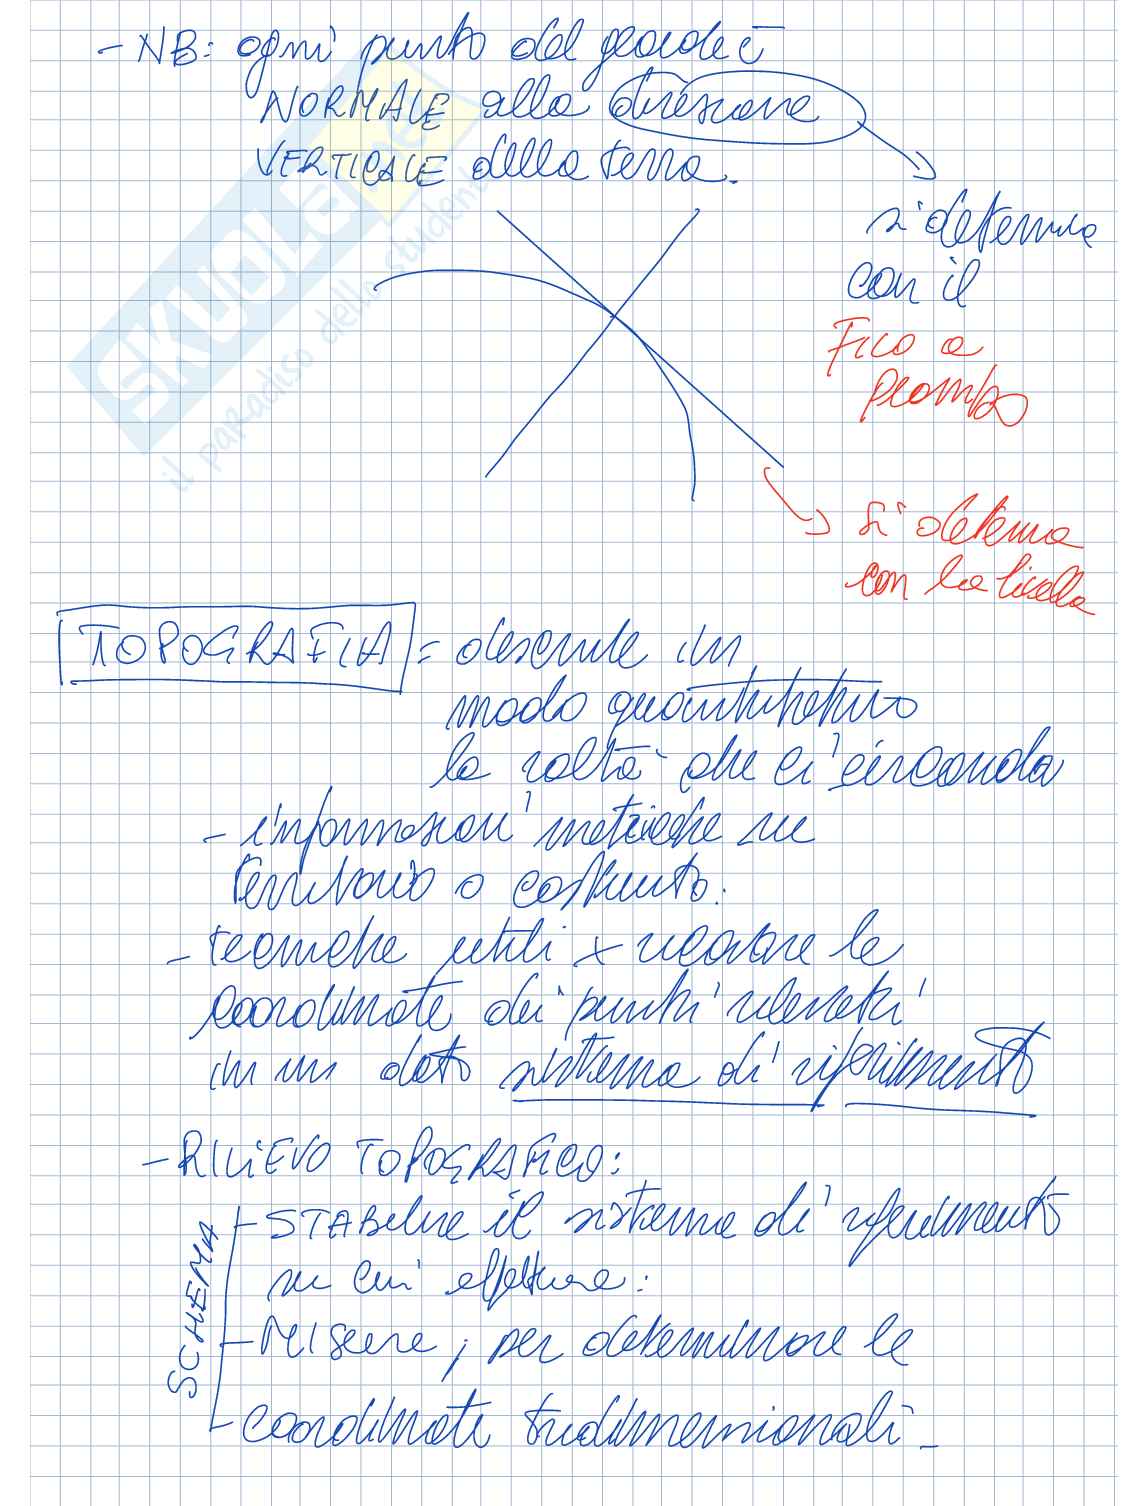 - NB: ogni punto del geoide è
NORMALE alla direzione
VERTICALE della terra.
si determina
con il
FILO a
PIOMBO
si determa
con la livella
TOPOGRAFIA = descrive in
modo quantitativo
la realtà che ci circonda
- informazioni metriche su
territorio o costruito.
- tecniche utili x ricavare le
coordinate dei punti rilevati
in un dato sistema di riferimento
- RILIEVO TOPOGRAFICO:
SCHEMA
- STABilire il sistema di riferimento
su cui effettuare:
- Misure, per determinare le
- coordinate tridimensionali -
SKUOLA.NET
il paradiso dello studente